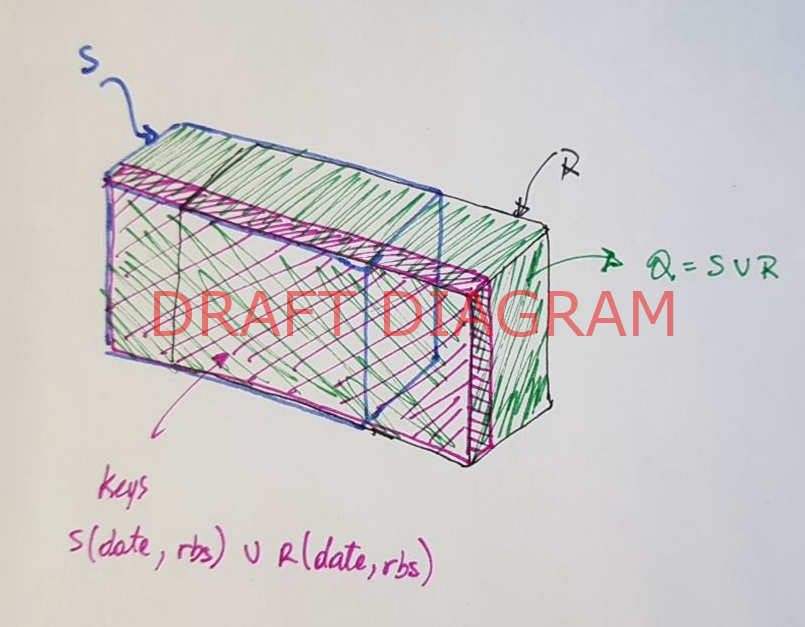 S
R
Q = S ∪ R
DRAFT DIAGRAM
Keys
S(date, rbs) ∪ R(date, rbs)